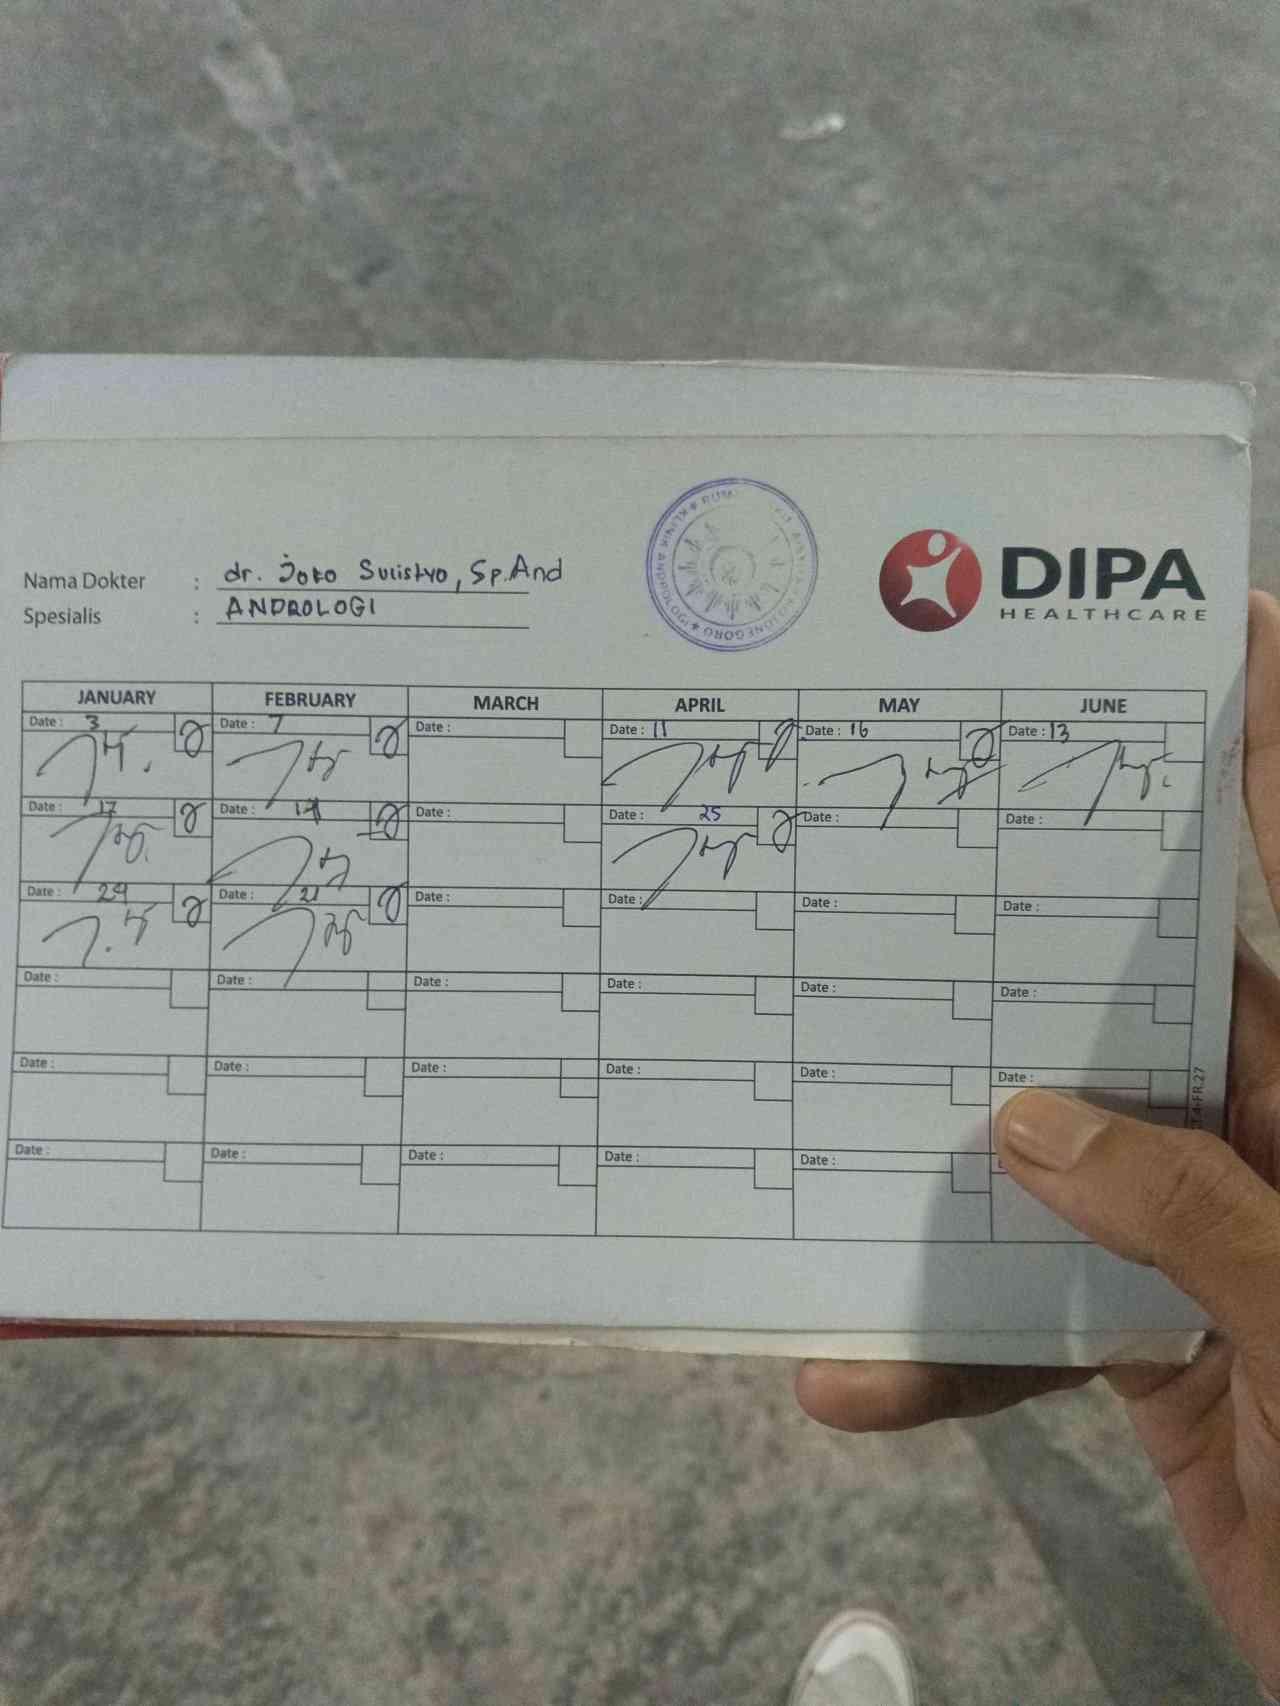 Nama Dokter : dr. Joko Sulistyo, Sp.And
Spesialis : ANDROLOGI
KLINIK ANDROLOGI
DIPA
HEALTHCARE
JANUARY FEBRUARY MARCH APRIL MAY JUNE
Date : 3 Date : 7 Date : Date : 11 Date : 16 Date : 13
Date : 17 Date : Date : Date : 25 Date : Date :
Date : 24 Date : 21 Date : Date : Date : Date :
Date : Date : Date : Date : Date : Date :
Date : Date : Date : Date : Date : Date :
Date : Date : Date : Date : Date :